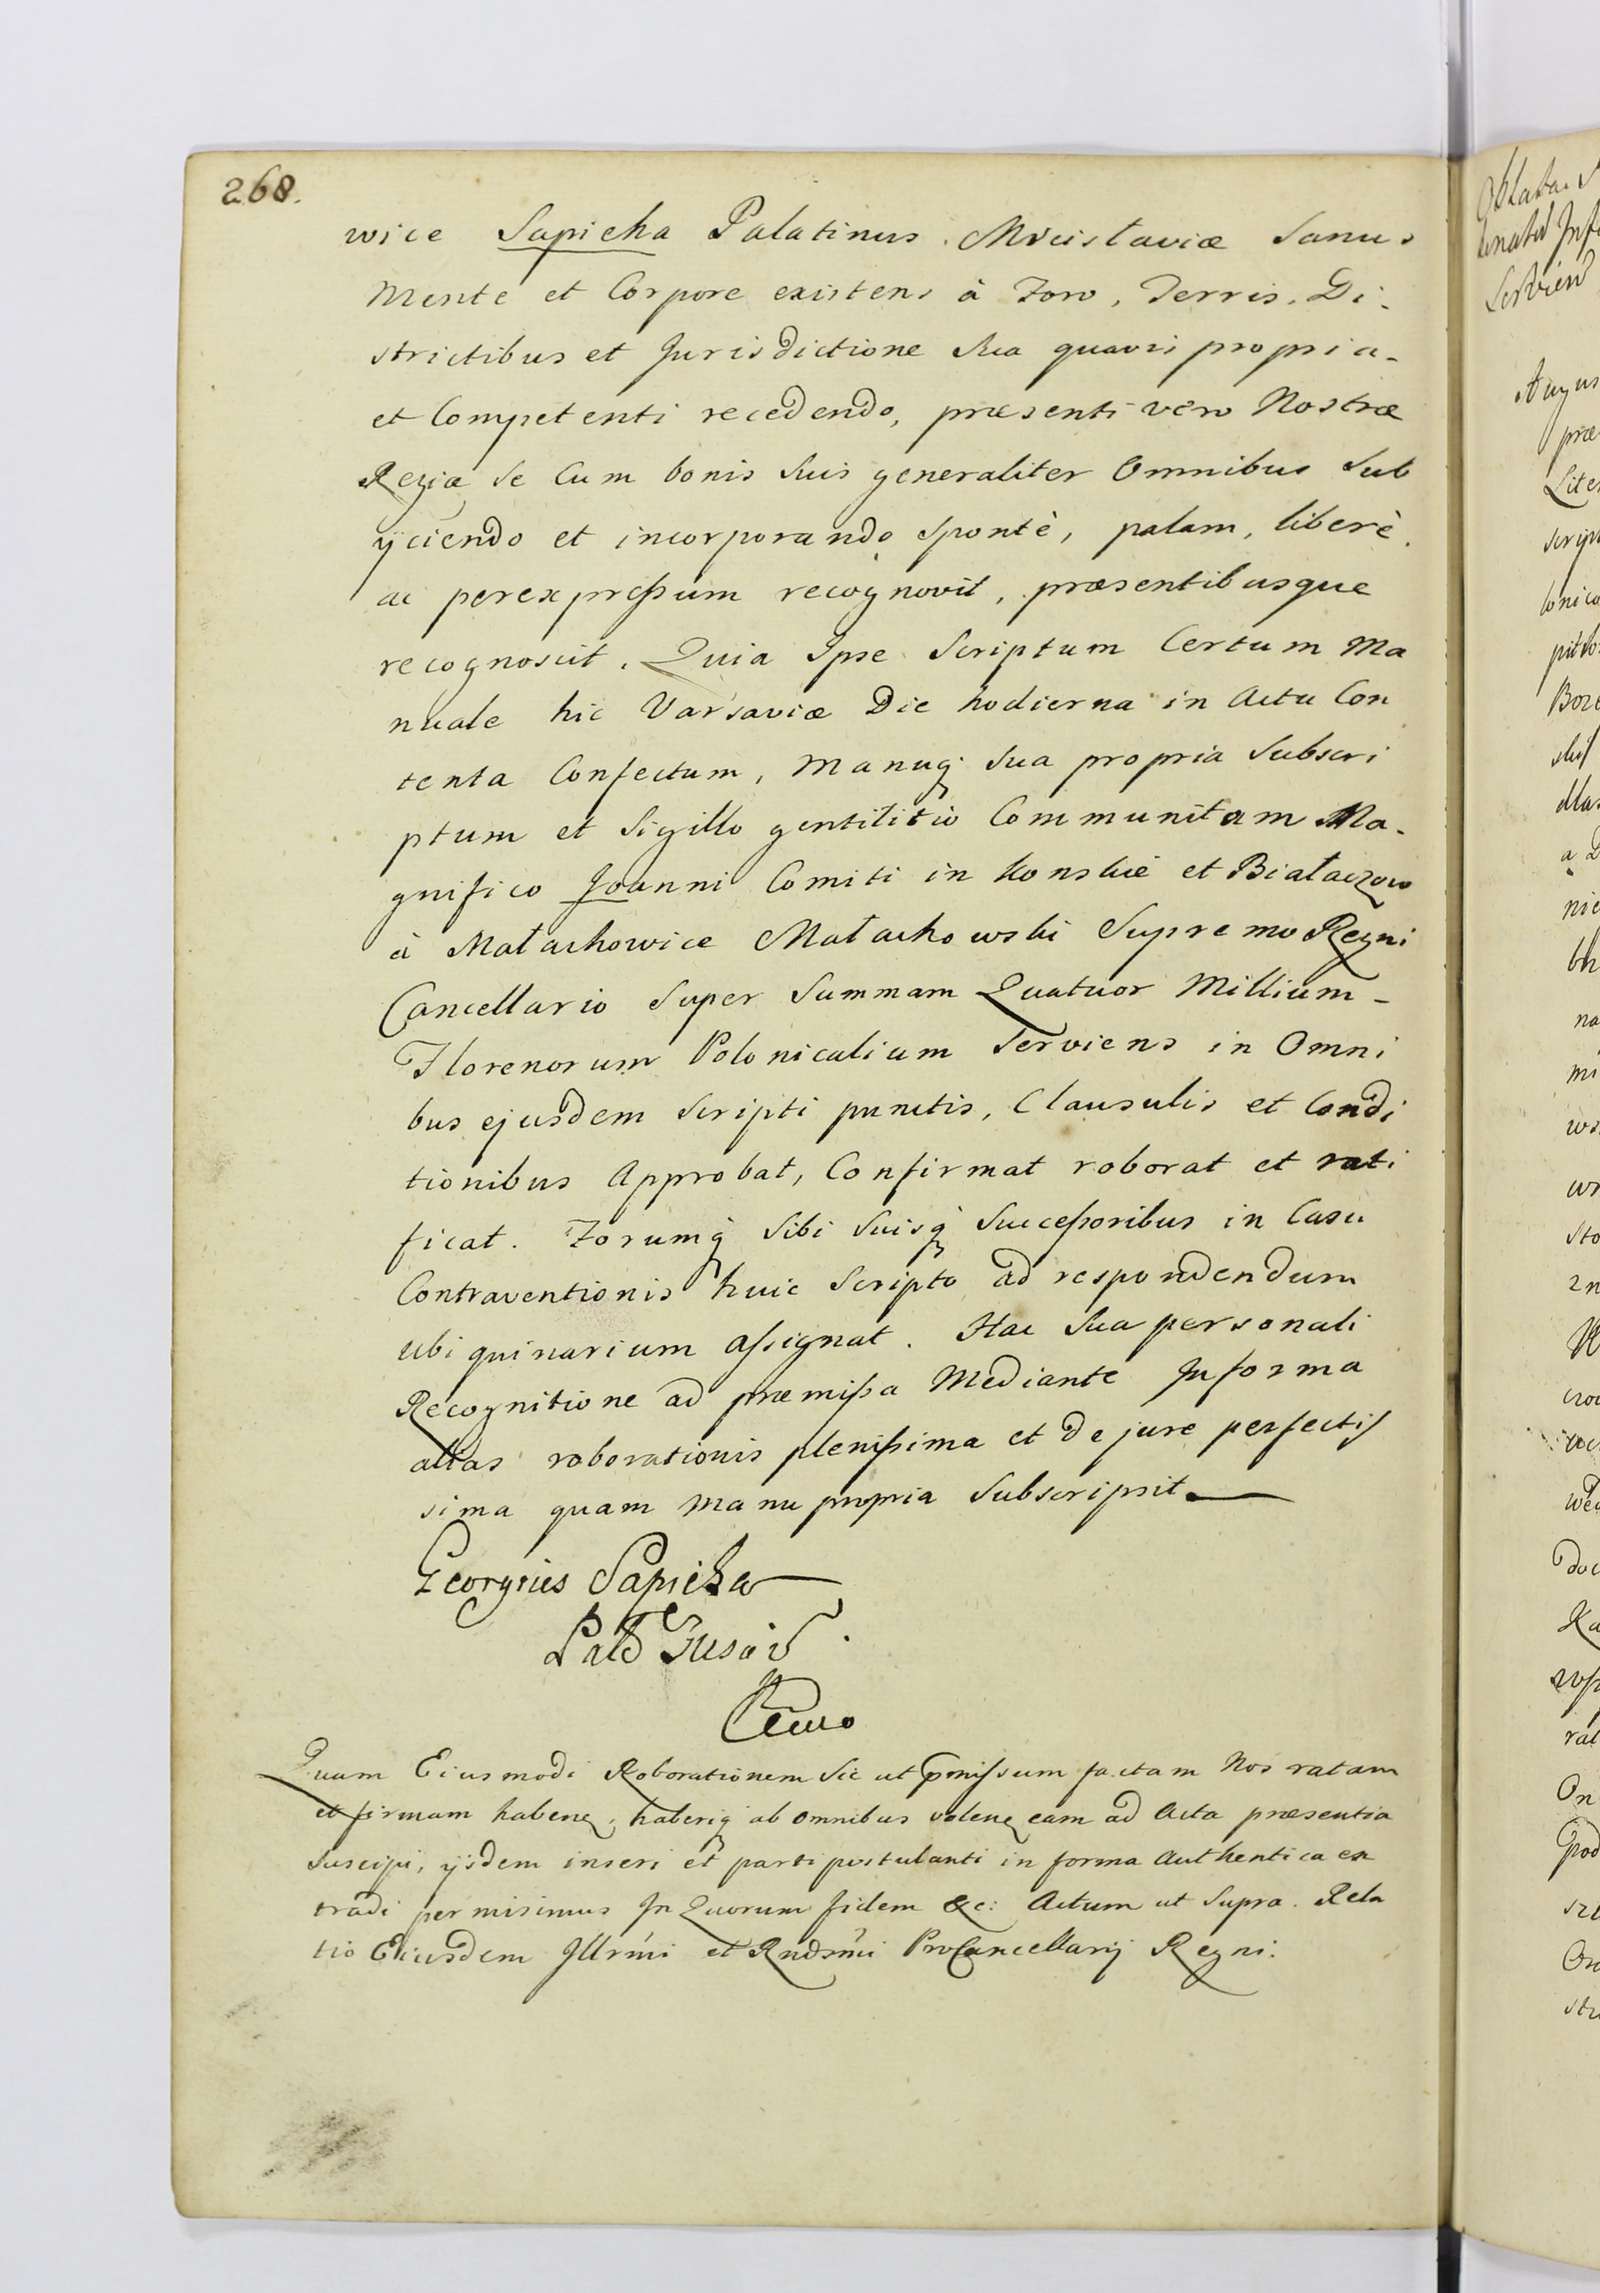 268.
wice Sapieha Palatinus Mścisłaviæ Sanus
Mente et Corpore existens à Foro, Terris, Di-
strictibus et Jurisdictione sua quavis propria-
et Competenti recedendo, præsenti vero Nostræ
Regiæ se Cum bonis suis generaliter Omnibus Sub
ÿciendo et incorporando spontè, palam, liberè
ac perexpressum recognovit, præsentibusque
recognoscit. Quia Ipse Scriptum Certum Ma
nuale hic Varsaviæ Die hodierna in Actu Con
tenta Confectum, Manuq; sua propria Subscri
ptum et Sigillo gentilitio Communitam Ma-
gnifico Joanni Comiti in Konskie et Białaczow
à Małachowice Małachowski Supremo Regni
Cancellario Super Summam Quatuor Millium-
Florenorum Polonicalium Serviens in Omni
bus ejusdem Scripti punctis, Clausulis et Condi
tionibus Approbat, Confirmat roborat et rati
ficat. Forumq; Sibi Suisq; Successoribus in Casu
Contraventionis huic Scripto ad respondendum
ubiquinarium assignat. Hac Sua personali
Recognitione ad præmissa Mediante In forma
altas roborationis plenissima et de jure perfectis
sima quam manu propria Subscripsit
Georgius Sapieha
Quam Eiusmodi Roborationem Sic ut pmissum factam Nos ratam
et firmam habenq; haberiq; ab omnibus volenq; eam ad Acta præsentia
Suscipi, ÿsdem inseri et parti postulanti in forma Authentica ex
tradi permisimus In Quorum fidem &c: Actum ut Supra. Rela
tio Eiusdem Illrmi et Rndsmi ProCancellarij Regni.